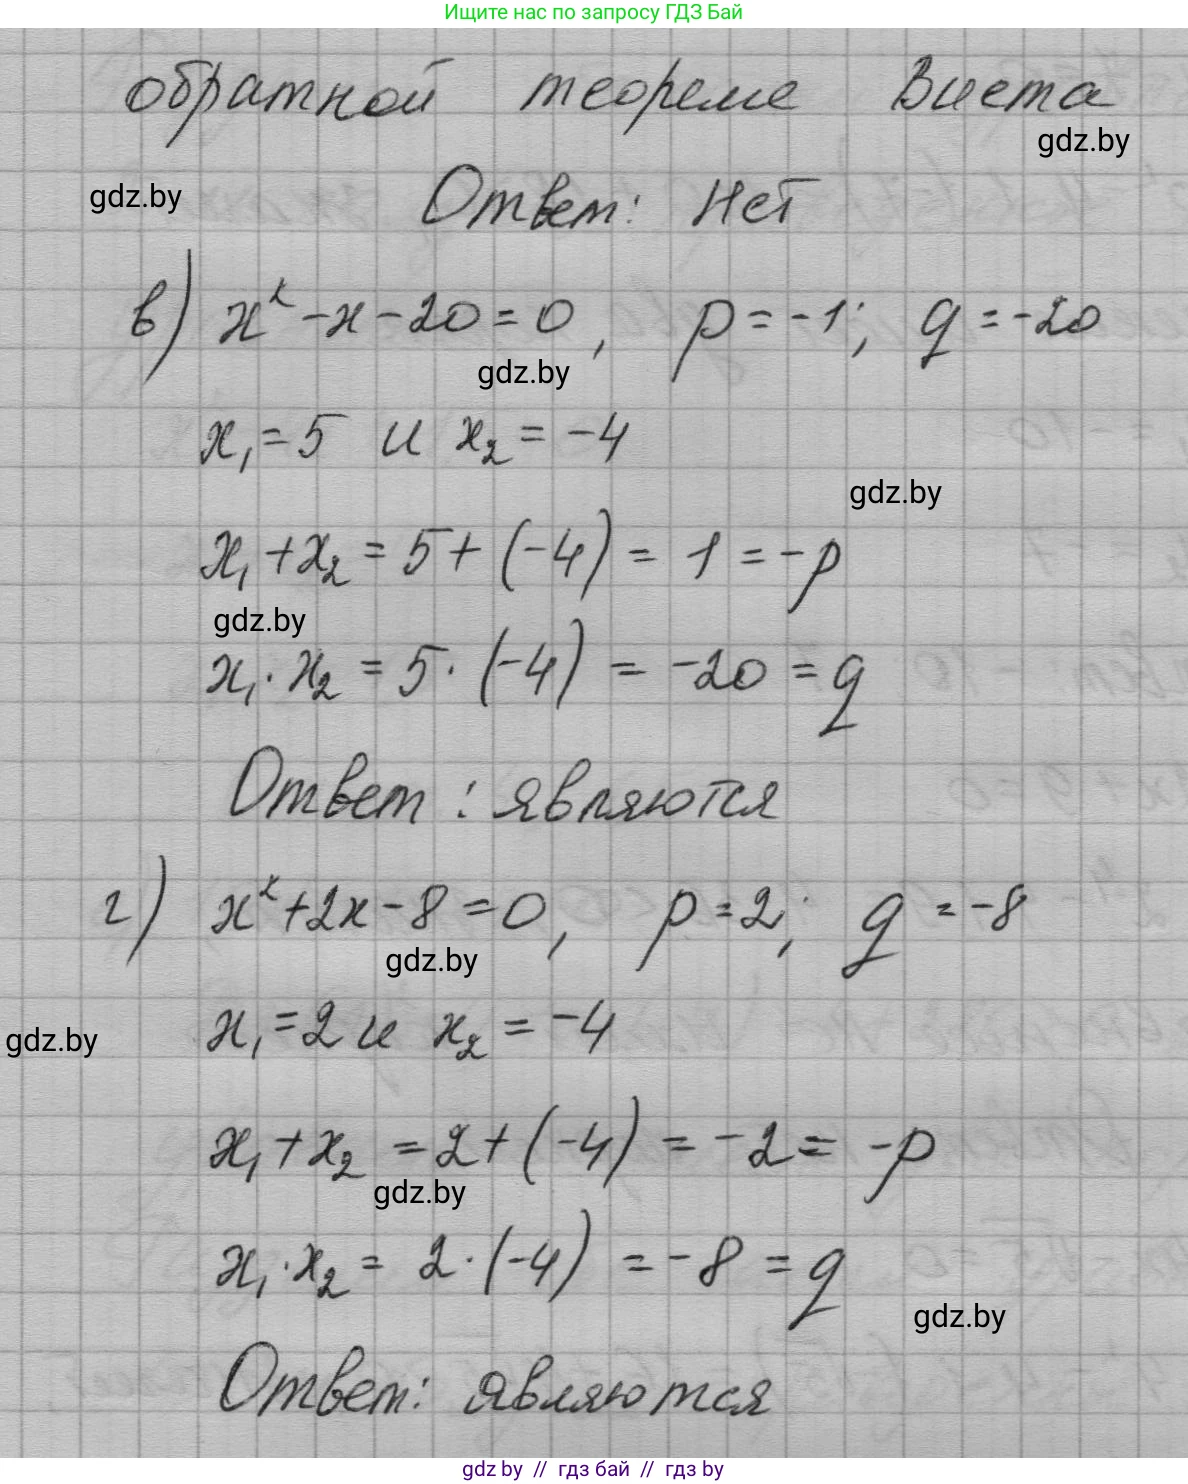 Ищите нас по запросу ГДЗ Бай
обратной теореме Виета
gdz.by
gdz.by
Ответ: Нет
в) x² - x - 20 = 0, p = -1; q = -20
gdz.by
x₁ = 5 и x₂ = -4
gdz.by
x₁ + x₂ = 5 + (-4) = 1 = -p
gdz.by
x₁ · x₂ = 5 · (-4) = -20 = q
Ответ: являются
г) x² + 2x - 8 = 0, p = 2; q = -8
gdz.by
x₁ = 2 и x₂ = -4
gdz.by
x₁ + x₂ = 2 + (-4) = -2 = -p
gdz.by
x₁ · x₂ = 2 · (-4) = -8 = q
gdz.by
Ответ: являются
gdz by // гдз бай // gdz by